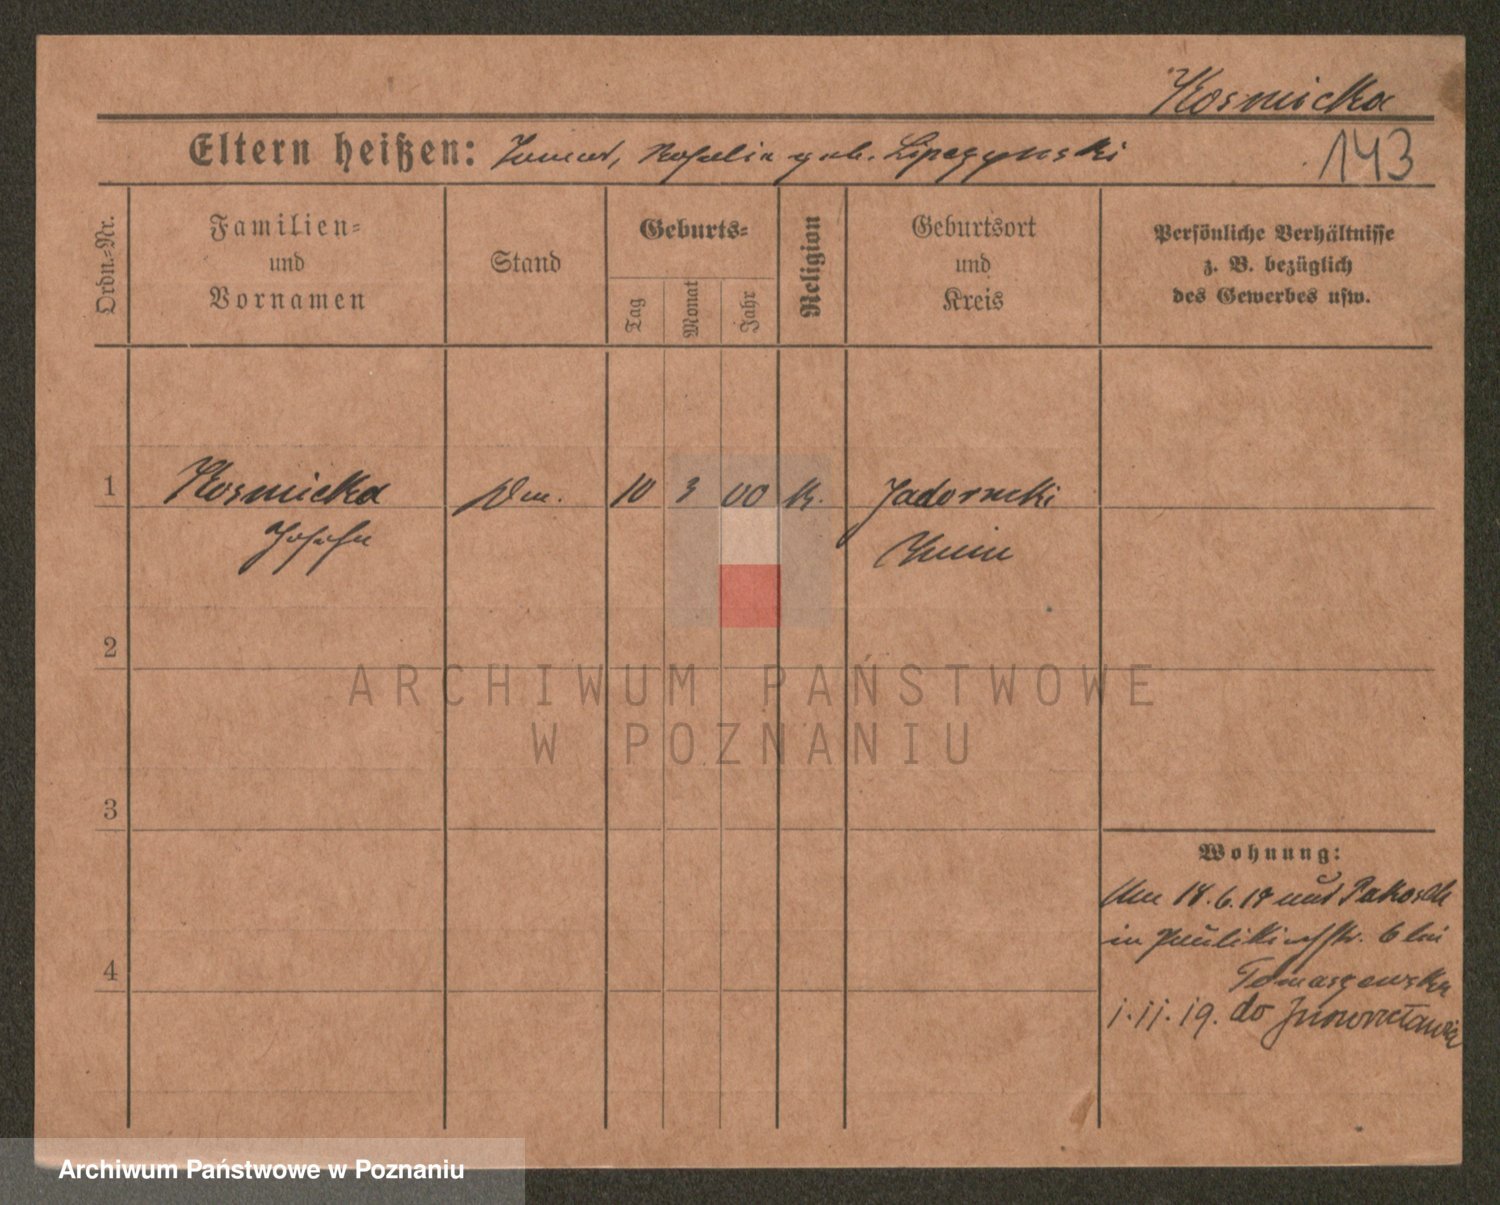 Kosmicka
Eltern heißen: Tomas, Rosalia geb. Lipczynski
143
Ordn.-Nr.
Familien-
und
Vornamen
Stand
Geburts-
Tag
Monat
Jahr
Religion
Geburtsort
und
Kreis
Persönliche Verhältnisse
z. B. bezüglich
des Gewerbes usw.
1 Kosmicka 10 3 00 k.
Josefa Znin
2
ARCHIWUM PAŃSTWOWE
W POZNANIU
3
Wohnung:
18.6.18 aus Pakosch
in 6 bei
4 Tomaszewska
1.11.19. do Inowrocławia
Archiwum Państwowe w Poznaniu